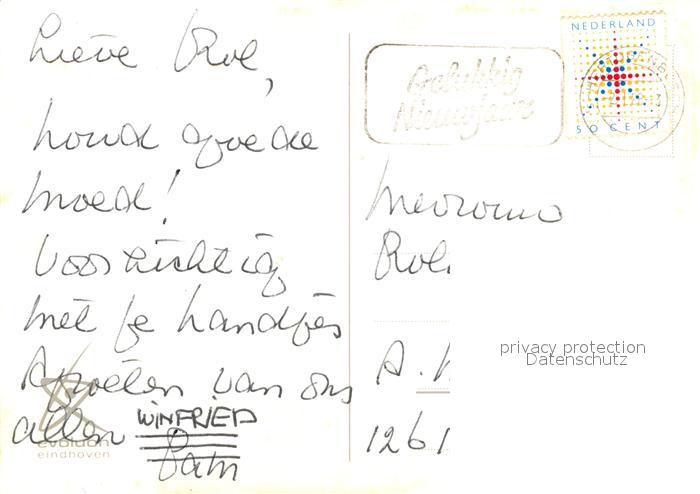 Lieve Roel,
houd goede
moed!
Voorzichtig
met je handjes
Groeten van ons
allen
WINFRIED
evolution
eindhoven
Gelukkig
Nieuwjaar
NEDERLAND
50 CENT
Mevrouw
A.
1261
privacy protection
Datenschutz